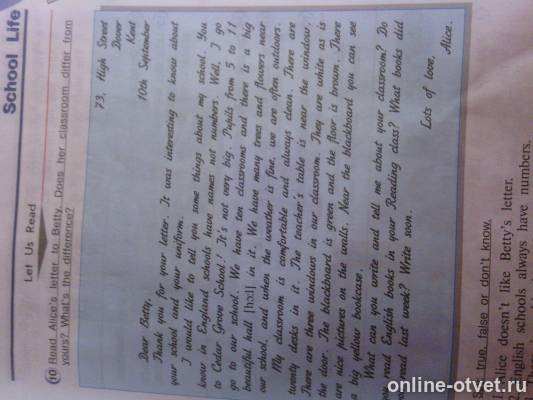 School Life
Let Us Read
10 Read Alice's letter to Betty. Does her classroom differ from
yours? What's the difference?
73, High Street
Dover
Kent
10th September
Dear Betty,
Thank you for your letter. It was interesting to know about
your school and your uniform.
I would like to tell you some things about my school. You
know in England schools have names not numbers. Well, I go
to Cedar Grove School! It's not very big. Pupils from 5 to 11
go to our school. We have ten classrooms and there is a big
beautiful hall [hɔːl] in it. We have many trees and flowers near
our school, and when the weather is fine, we are often outdoors.
My classroom is comfortable and always clean. There are
twenty desks in it. The teacher's table is near the window.
There are three windows in our classroom. They are white as is
the door. The blackboard is green and the floor is brown. There
are nice pictures on the walls. Near the blackboard you can see
a big yellow bookcase.
What can you write and tell me about your classroom? Do
you read English books in your Reading class? What books did
you read last week? Write soon.
Lots of love,
Alice.
true, false or don't know.
Alice doesn't like Betty's letter.
English schools always have numbers.
online-otvet.ru